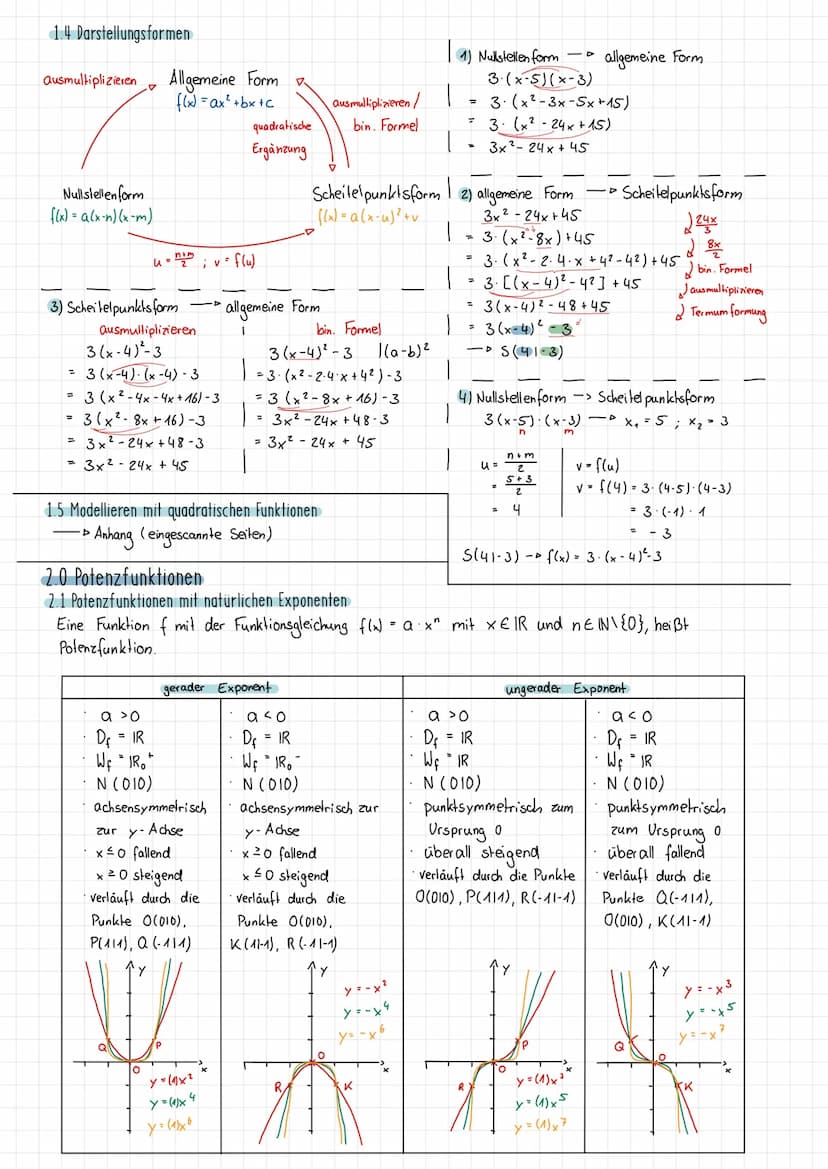 1.4 Darstellungsformen
ausmultiplizieren
Allgemeine Form
f(x) = ax² + bx + c
ausmultiplizieren /
bin. Formel
quadratische
Ergänzung
Nullstellenform
f(x) = a(x-n)(x-m)
Scheitelpunktsform
f(x) = a(x-u)² + v
u = n+m/2 ; v = f(u)
1) Nullstellenform → allgemeine Form
3·(x-5)(x-3)
= 3·(x²-3x-5x+15)
= 3·(x² - 24x + 15)
= 3x² - 24x + 45
2) allgemeine Form → Scheitelpunktsform
3x² - 24x + 45
= 3·(x²-8x)+45
= 3·(x² - 2·4·x + 4² - 4²) + 45
= 3·[(x-4)² - 4²] + 45
= 3(x-4)² - 48 + 45
= 3(x-4)² - 3
→ S(4|-3)
24x/3
8x/2
bin. Formel
ausmultiplizieren
Termumformung
3) Scheitelpunktsform → allgemeine Form
ausmultiplizieren
3(x-4)²-3
= 3(x-4)·(x-4)-3
= 3(x²-4x-4x+16)-3
= 3(x²-8x+16)-3
= 3x²-24x+48-3
= 3x² - 24x + 45
bin. Formel
3(x-4)²-3 |(a-b)²
= 3·(x²-2·4·x+4²)-3
= 3(x²-8x+16)-3
= 3x²-24x+48-3
= 3x² - 24x + 45
4) Nullstellenform → Scheitelpunktsform
3(x-5)·(x-3) → x₁ = 5 ; x₂ = 3
n m
u = n+m/2
= 5+3/2
= 4
v = f(u)
v = f(4) = 3·(4-5)·(4-3)
= 3·(-1)·1
= -3
S(4|-3) → f(x) = 3·(x-4)²-3
1.5 Modellieren mit quadratischen Funktionen
→ Anhang (eingescannte Seiten)
2.0 Potenzfunktionen
2.1 Potenzfunktionen mit natürlichen Exponenten
Eine Funktion f mit der Funktionsgleichung f(x) = a·xⁿ mit x∈ℝ und n∈ℕ\{0}, heißt
Potenzfunktion.
gerader Exponent
ungerader Exponent
· a > 0
· Df = ℝ
· Wf = ℝ₀⁺
· N(0|0)
· achsensymmetrisch
zur y-Achse
· x ≤ 0 fallend
x ≥ 0 steigend
· verläuft durch die
Punkte O(0|0),
P(1|1), Q(-1|1)
y
Q
P
O
x
y = (1)x²
y = (1)x⁴
y = (1)x⁶
· a < 0
· Df = ℝ
· Wf = ℝ₀⁻
· N(0|0)
· achsensymmetrisch zur
y-Achse
· x ≥ 0 fallend
x ≤ 0 steigend
· verläuft durch die
Punkte O(0|0),
K(1|-1), R(-1|-1)
y
y = -x²
y = -x⁴
y = -x⁶
O
x
R
K
· a > 0
· Df = ℝ
· Wf = ℝ
· N(0|0)
· punktsymmetrisch zum
Ursprung 0
· überall steigend
· verläuft durch die Punkte
O(0|0), P(1|1), R(-1|-1)
y
P
O
x
R
y = (1)x³
y = (1)x⁵
y = (1)x⁷
· a < 0
· Df = ℝ
· Wf = ℝ
· N(0|0)
· punktsymmetrisch
zum Ursprung 0
· überall fallend
· verläuft durch die
Punkte Q(-1|1),
O(0|0), K(1|-1)
y
y = -x³
y = -x⁵
y = -x⁷
Q
O
x
K